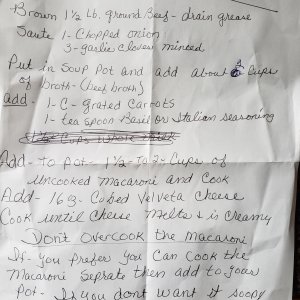 Brown 1½ Lb. ground Beef - drain grease
Saute 1- Chopped onion
3- garlic cloves minced
Put in Soup Pot and add about 3 Cups
of Broth - (beef broth)
add - 1- C - Grated Carrots
1- tea spoon Basil or Italian seasoning
Add - to pot - 1½ - to 2 - Cups of
Uncooked Macaroni and Cook
Add - 16 oz - Cubed Velveta Cheese
Cook until cheese Melts & is creamy
Don't overcook the macaroni
If - you prefer you can cook the
Macaroni seprate then add to your
Pot - If you dont want it soupy